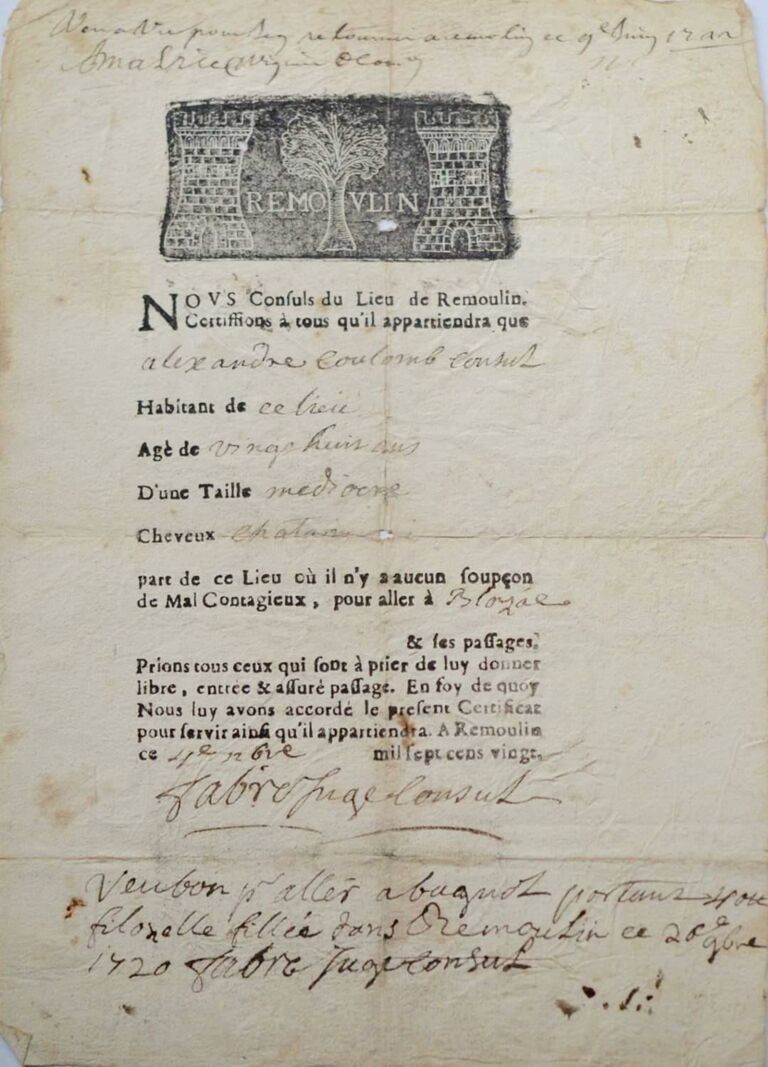 pour
retourner a remoulin ce 9e
REMOVLIN
NOVS Conſuls du Lieu de Remoulin,
Certiffions à tous qu'il appartiendra que
alexandre Coulomb Consul
Habitant de ce lieu
Agè de vingt huit ans
D'une Taille mediocre
Cheveux chatain
part de ce Lieu où il n'y a aucun ſoupçon
de Mal Contagieux, pour aller à
& ſes paſſages.
Prions tous ceux qui ſont à prier de luy donner
libre, entrée & aſſuré paſſage. En foy de quoy
Nous luy avons accordé le preſent Certificat
pour ſervir ainſi qu'il appartiendra. A Remoulin
ce mil ſept cens vingt.
fabre Juge Consul
Veu bon pr aller a portant
filozelle fillée dans Remoulin ce 20e 9bre
1720 fabre Juge Consul